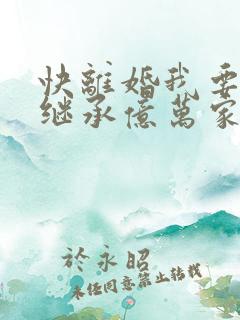 快離婚我要
继承億萬家
於永昭
未任同意禁止转载